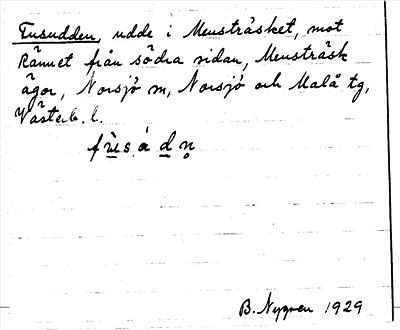 Fusudden, udde i Mensträsket, mot
Rännet från södra sidan, Mensträsk
ägor, Norsjö sn, Norsjö och Malå tg,
Västerb. l.
fùsádn̥
B. Nygren 1929